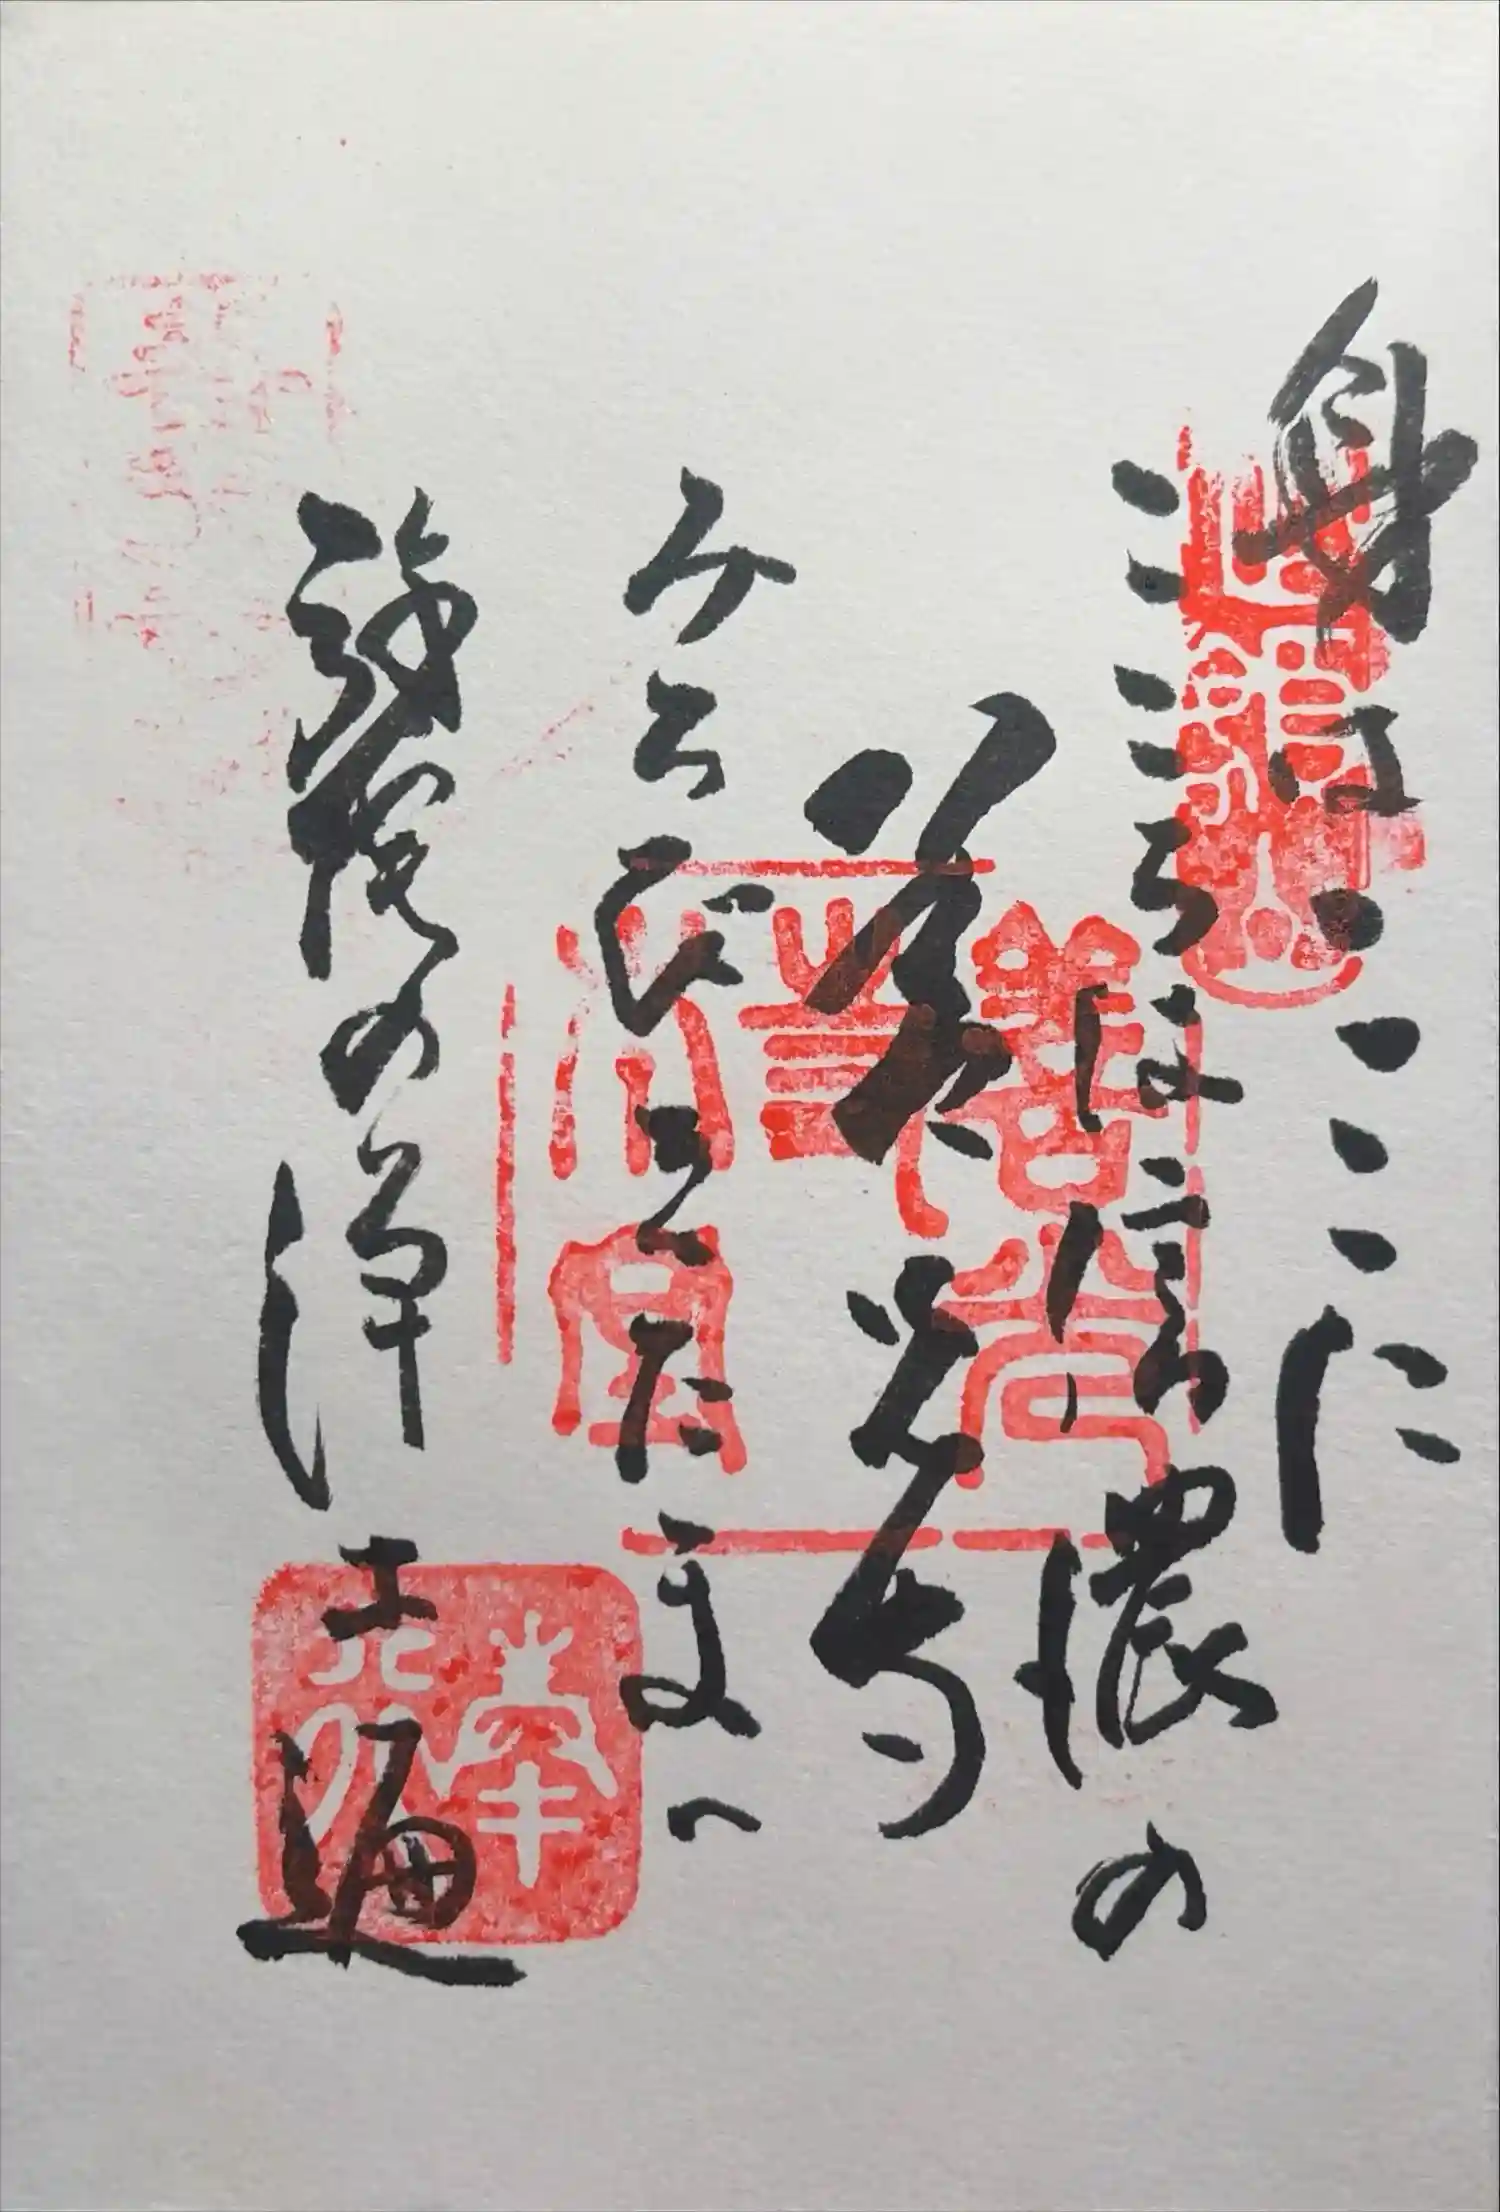 身はここに
こころは信濃の
善光寺
みちびきたまへ
彌陀の浄土遍